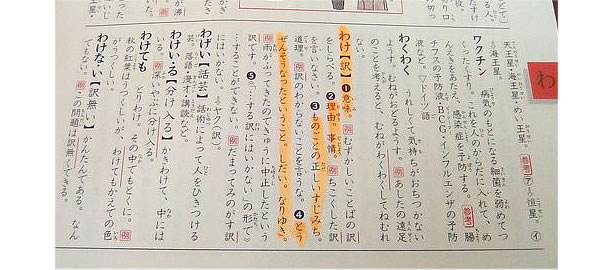 天王星・海王星・めい王星。 参考 ㋐恒星。 ㋑
ワクチン 病気のもとになる細菌を弱めてつ
くったくすり。これを人のからだに入れて、め
んえきをあたえ、感染症を予防する。 参考 腸
チフスの予防液・BCG・インフルエンザの予防
液など。▽ドイツ語
わくわく うれしくて気持ちがおちつかない
ようす。むねがおどるようす。 例 あしたの遠足
のことを考えると、むねがわくわくしてねむれ
ない。
わけ【訳】 ❶意味。 例 むずかしいことばの訳
をしらべる。 ❷理由。事情。 例 ちこくした訳
を言いなさい。 ❸ものごとの正しいすじみち。
道理。 例 訳のわからないことを言うな。 ❹どう
ぜんそうなったということ。しだい。なりゆき。
例 雨がふってきたのできゅうに中止したという
訳です。 ❺《「…する訳にはいかない」の形で》
…することができない。 例 だまってみのがす訳
にはいかない。
わげい【話芸】 話術によって人をひきつける
芸。落語・漫才・講談など。
わけいる【分け入る】 かきわけて、中には
いる。 例 深いやぶに分け入る。
わけても とりわけ。その中でもとくに。 例
秋の紅葉はうつくしいが、わけてもかえでの色
がうつくしい。
わけない【訳無い】 かんたんである。なん
でもない。 例 この問題は訳無くできる。
わ